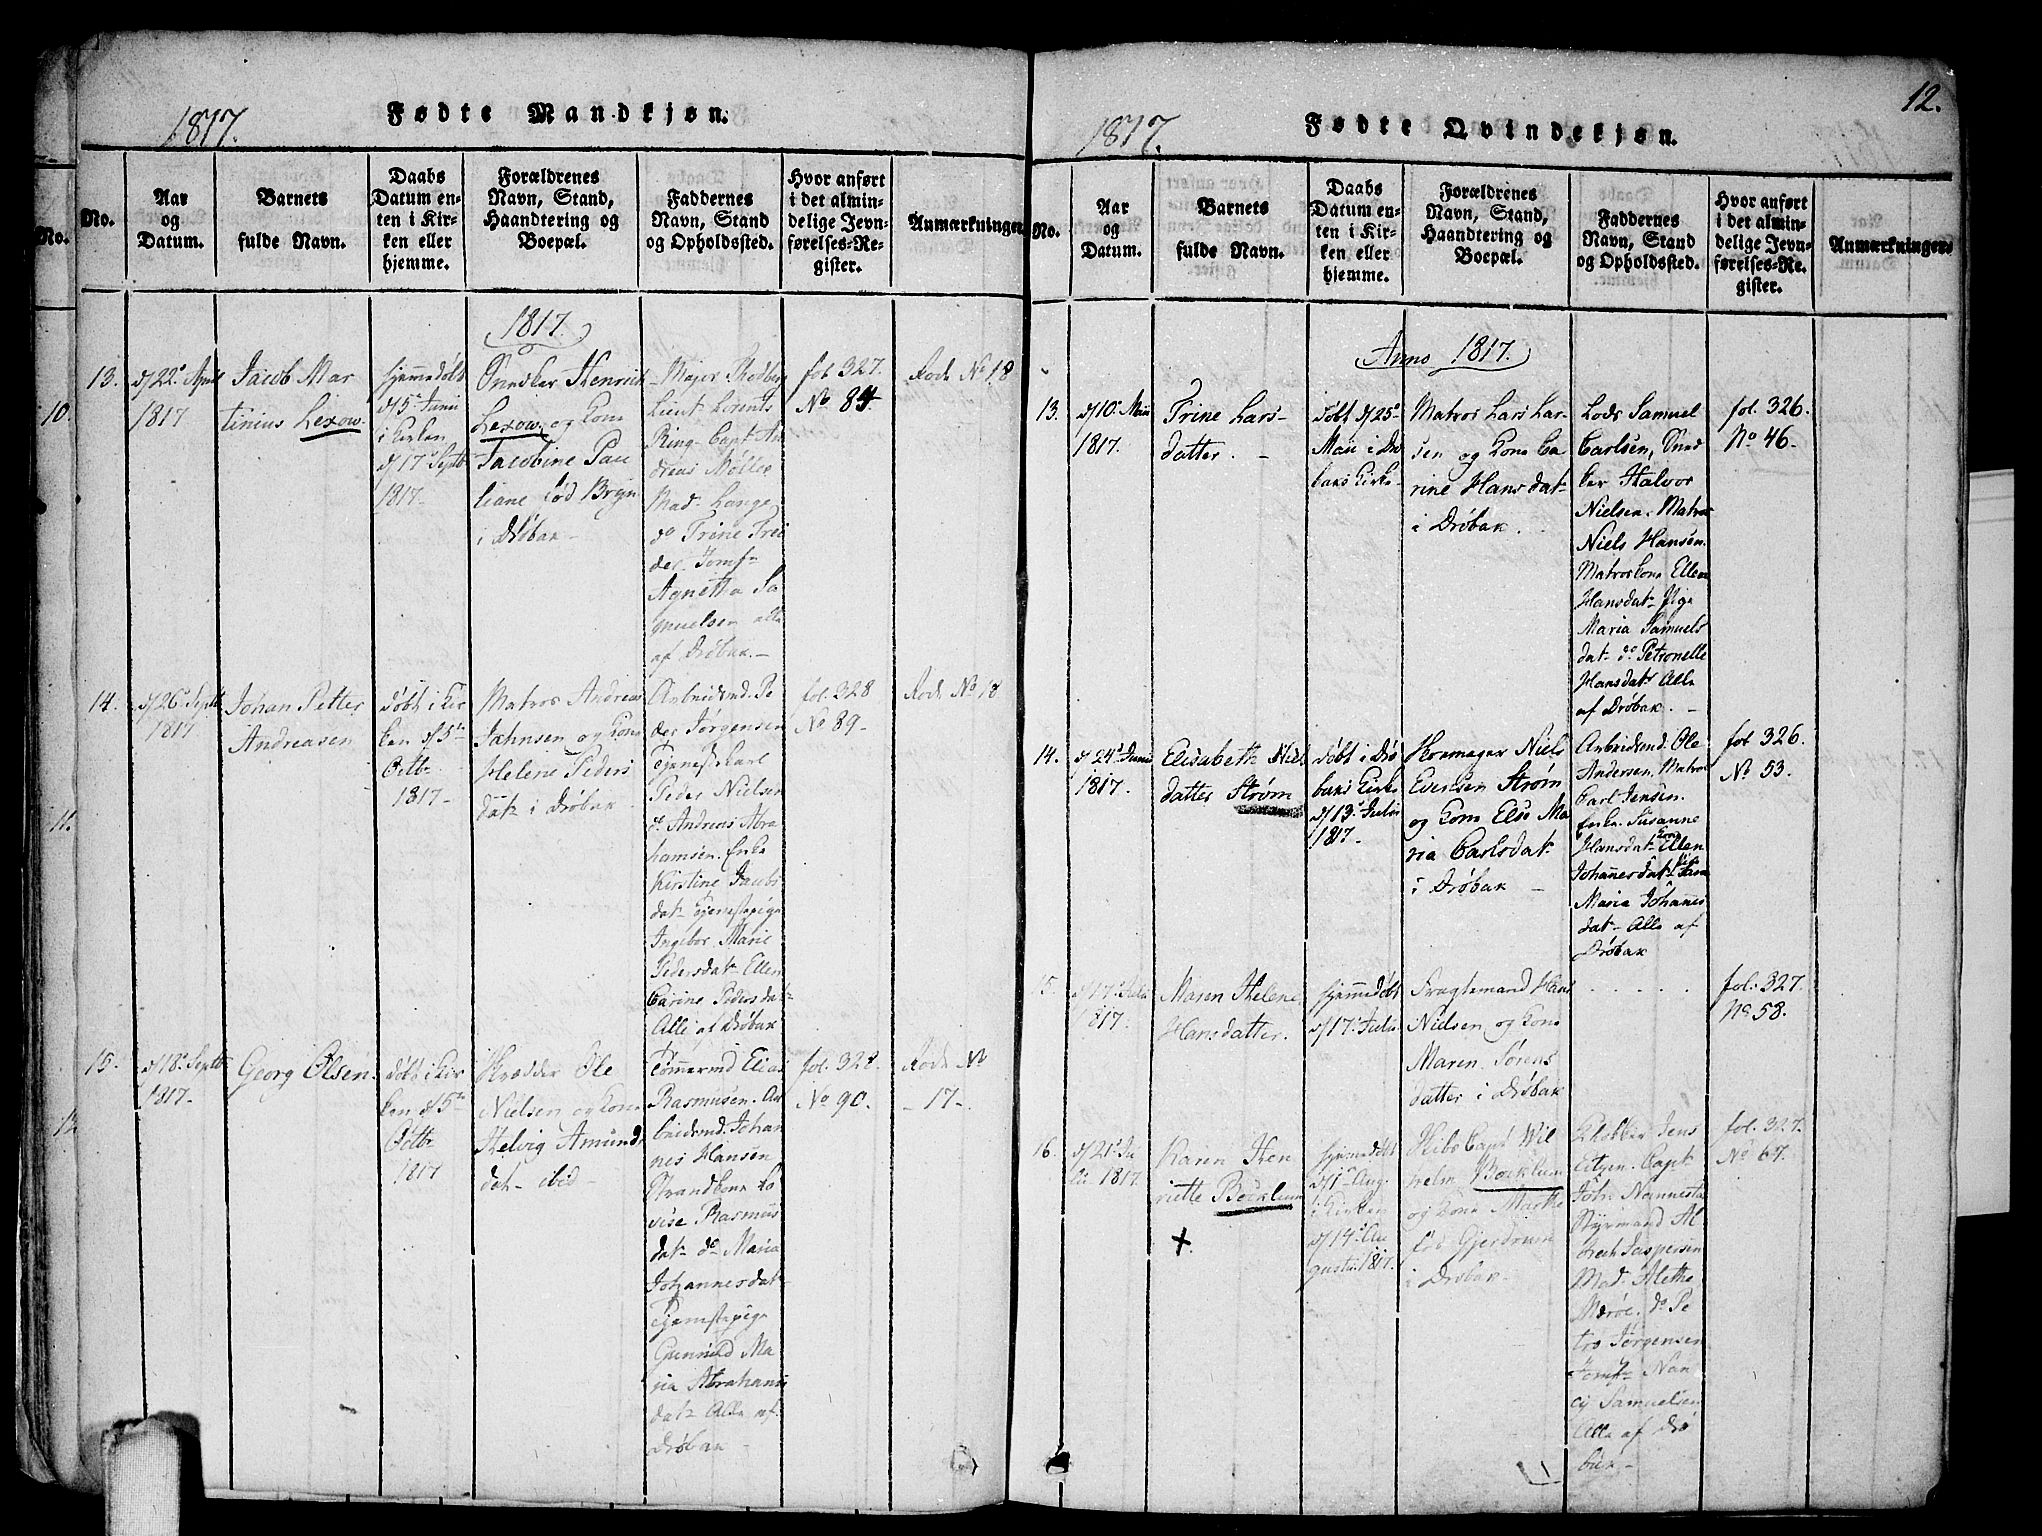 12.
1817.
Fødte Mandkjøn.
No.
Aar
og
Datum.
Barnets
fulde Navn.
Daabs
Datum en-
ten i Kir-
ken eller
hjemme.
Forældrenes
Navn, Stand,
Haandtering og
Boepæl.
Faddernes
Navn, Stand
og Opholdssted.
Hvor anført
i det almin-
delige Jevn-
førelses-Re-
gister.
Anmærkninger
1817.
13.
d/22de April
1817
Jacob Mar
tinius Lexow.
hjemmedøbt
d/5te Junii
i Kirken
d/17de Septb
1817
Snedker Henrich
Lexow og Kone
Jacobine Pau
liane fød Bryn
i Drøbak
Major Rodberg
Lieut. Lorents
Ring. Capt An
dreas Møller
Mad. Lange
do Trine Trei
der. Jomf.
Agnetta Sa
muelsen alle
af Drøbak.
fol 327.
No 84.
Rode No 18
14.
d/26de Septb
1817
Johan Petter
Andreasen
døbt i Kir
ken d/5te
Octbr.
1817
Matros Andreas
Jahnsen og Kone
Helene Peders
dat i Drøbak
Arbeidsmd. Pe
der Jørgensen
Tjenestkarl
Peder Nielsen
do Andreas Abra
hamsen. Enke
Kirstine Jacobs
dat Tjenestepige
Ingebor Marie
Pedersdat Ellen
Carine Pedersdat
Alle af Drøbak
fol. 328
No 89
Rode No 18
15.
d/18de Septb
1817
Georg Olsen.
døbt i Kir
ken d/5te
Octbr
1817
Skrædder Ole
Nielsen og Kone
Helvig Amunds
dat ibid
Tømmermd Elias
Rasmusen. Ar
beidsmd. Johan
nes Hansen
Strandkone Lo
vise Rasmus
dat do Maria
Johannesdat
Tjenestepige
Gunnild Ma
ria Abrahams
dat Alle af
Drøbak
fol. 328
No 90.
Rode No
17
1817.
Fødte Qvindekjøn.
No.
Aar
og
Datum.
Barnets
fulde Navn.
Daabs
Datum en-
ten i Kir-
ken eller
hjemme.
Forældrenes
Navn, Stand,
Haandtering og
Boepæl.
Faddernes
Navn, Stand
og Opholdssted.
Hvor anført
i det almin-
delige Jevn-
førelses-Re-
gister.
Anmærkninger
Anno 1817.
13.
d/10de Maii
1817.
Trine Lars-
datter.
døbt d/25de
Maii i Drø
baks Kirke
Matros Lars Lar
sen og Kone Ca
rine Hansdat
i Drøbak.
Lods Samuel
Carlsen, Sned
ker Halvor
Nielsen. Matros
Niels Hansen.
Matroskone Ellen
Hansdat. Pige
Maria Samuels
dat do Petronelle
Hansdat Alle
af Drøbak.
fol. 326.
No 46
14.
d/24de Junii
1817.
Elisabeth Niels
datter Strøm
døbt i Drø
baks Kirke
d/13de Julii
1817
Skomager Niels
Evensen Strøm
og Kone Else Ma
ria Carlsdat
i Drøbak
Arbeidsmd. Ole
Andersen, Matros
Carl Jensen.
Enke. Susanne
Hansdat Kone Ellen
Johannesdat
Maria Johannes
dat Alle af
Drøbak
fol 326.
No 53.
15.
d/17de Julii
1817.
Maren Helene
Hansdatter.
hjemmedøbt
d/17de Julii
Fragtemand Hans
Nielsen og Kone
Maren Sørens
datter i Drøbak
fol. 327.
No 58.
16.
d/21de Ju
lii 1817.
Karen Hen
riette Bocklum
+
hjemmedøbt
d/1te Aug.
i Kirken
d/14de Au
gustii 1817.
Skibs Capt. Wil
helm Bocklum
og Kone Marthe
fød Gjerdrum
i Drøbak
Klokker Jens
Eitzen. Capt
Joh. Nannesta
Styrmand Al
Jaspersen
Mad. Alethe
Mørøe. do Pe
tro Jørgensen
Jomf. Nan
cy Samuelsen
Alle af Drø
bak
fol. 327.
No 67.
10.
11.
12